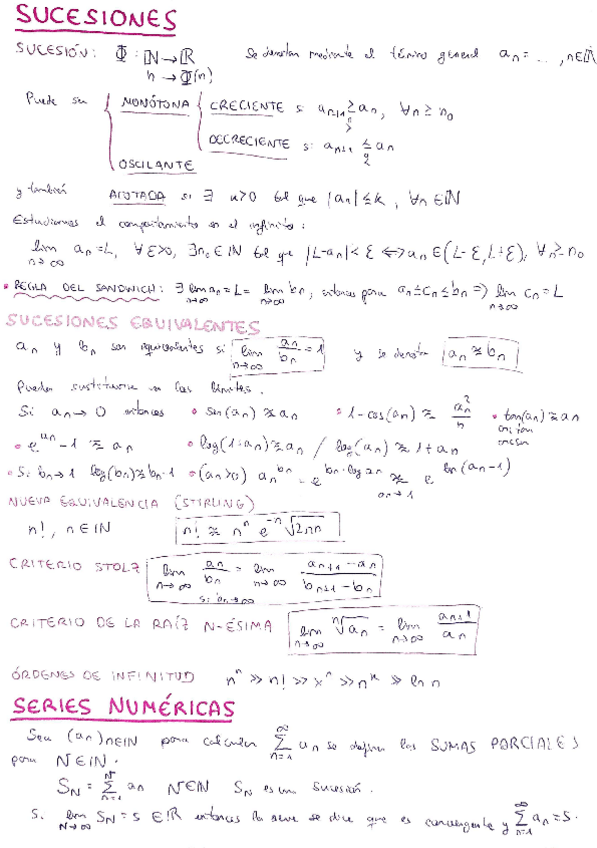 SUCESIONES
SUCESIÓN: Φ: ℕ → ℝ Se denotan mediante el término general aₙ = ..., n∈ℕ
n → Φ(n)
Puede ser MONÓTONA CRECIENTE si aₙ₊₁ ≥ aₙ, ∀n ≥ n₀
>
DECRECIENTE si aₙ₊₁ ≤ aₙ
OSCILANTE
y también ACOTADA si ∃ k>0 tal que |aₙ| ≤ k, ∀n ∈ ℕ
Estudiamos el comportamiento en el infinito:
lim n→∞ aₙ = L, ∀ε>0, ∃n₀ ∈ ℕ tal que |L-aₙ| < ε ⟺ aₙ ∈ (L-ε, L+ε), ∀n ≥ n₀
• REGLA DEL SANDWICH: ∃ lim n→∞ aₙ = L = lim n→∞ bₙ, entonces para aₙ ≤ cₙ ≤ bₙ ⇒ lim n→∞ cₙ = L
SUCESIONES EQUIVALENTES
aₙ y bₙ son equivalentes si lim n→∞ aₙ/bₙ = 1 y se denota aₙ ≈ bₙ
Pueden sustituirse en los límites.
Si aₙ → 0 entonces • sen(aₙ) ≈ aₙ • 1-cos(aₙ) ≈ aₙ²/n • tan(aₙ) ≈ aₙ
• e^aₙ - 1 ≈ aₙ • log(1+aₙ) ≈ aₙ / log(aₙ) ≈ 1+aₙ
• Si bₙ → 1 log(bₙ) ≈ bₙ-1 • (aₙ>0) aₙ^bₙ = e^(bₙ·log aₙ) ≈ aₙ→1 e^(bₙ(aₙ-1))
NUEVA EQUIVALENCIA (STIRLING)
n!, n∈ℕ n! ≈ nⁿ e⁻ⁿ √2πn
CRITERIO STOLZ lim n→∞ aₙ/bₙ = lim n→∞ (aₙ₊₁ - aₙ)/(bₙ₊₁ - bₙ)
CRITERIO DE LA RAÍZ N-ÉSIMA lim n→∞ ⁿ√aₙ = lim n→∞ aₙ₊₁/aₙ
ÓRDENES DE INFINITUD nⁿ >> n! >> xⁿ >> nᵏ >> ln n
SERIES NUMÉRICAS
Sea (aₙ)n∈ℕ para calcular ∑ₙ₌₁^∞ aₙ se definen las SUMAS PARCIALES
para N∈ℕ.
S_N = ∑ₙ₌₁^N aₙ N∈ℕ S_N es una sucesión.
Si lim N→∞ S_N = S ∈ ℝ entonces la serie se dice que es convergente y ∑ₙ₌₁^∞ aₙ = S.